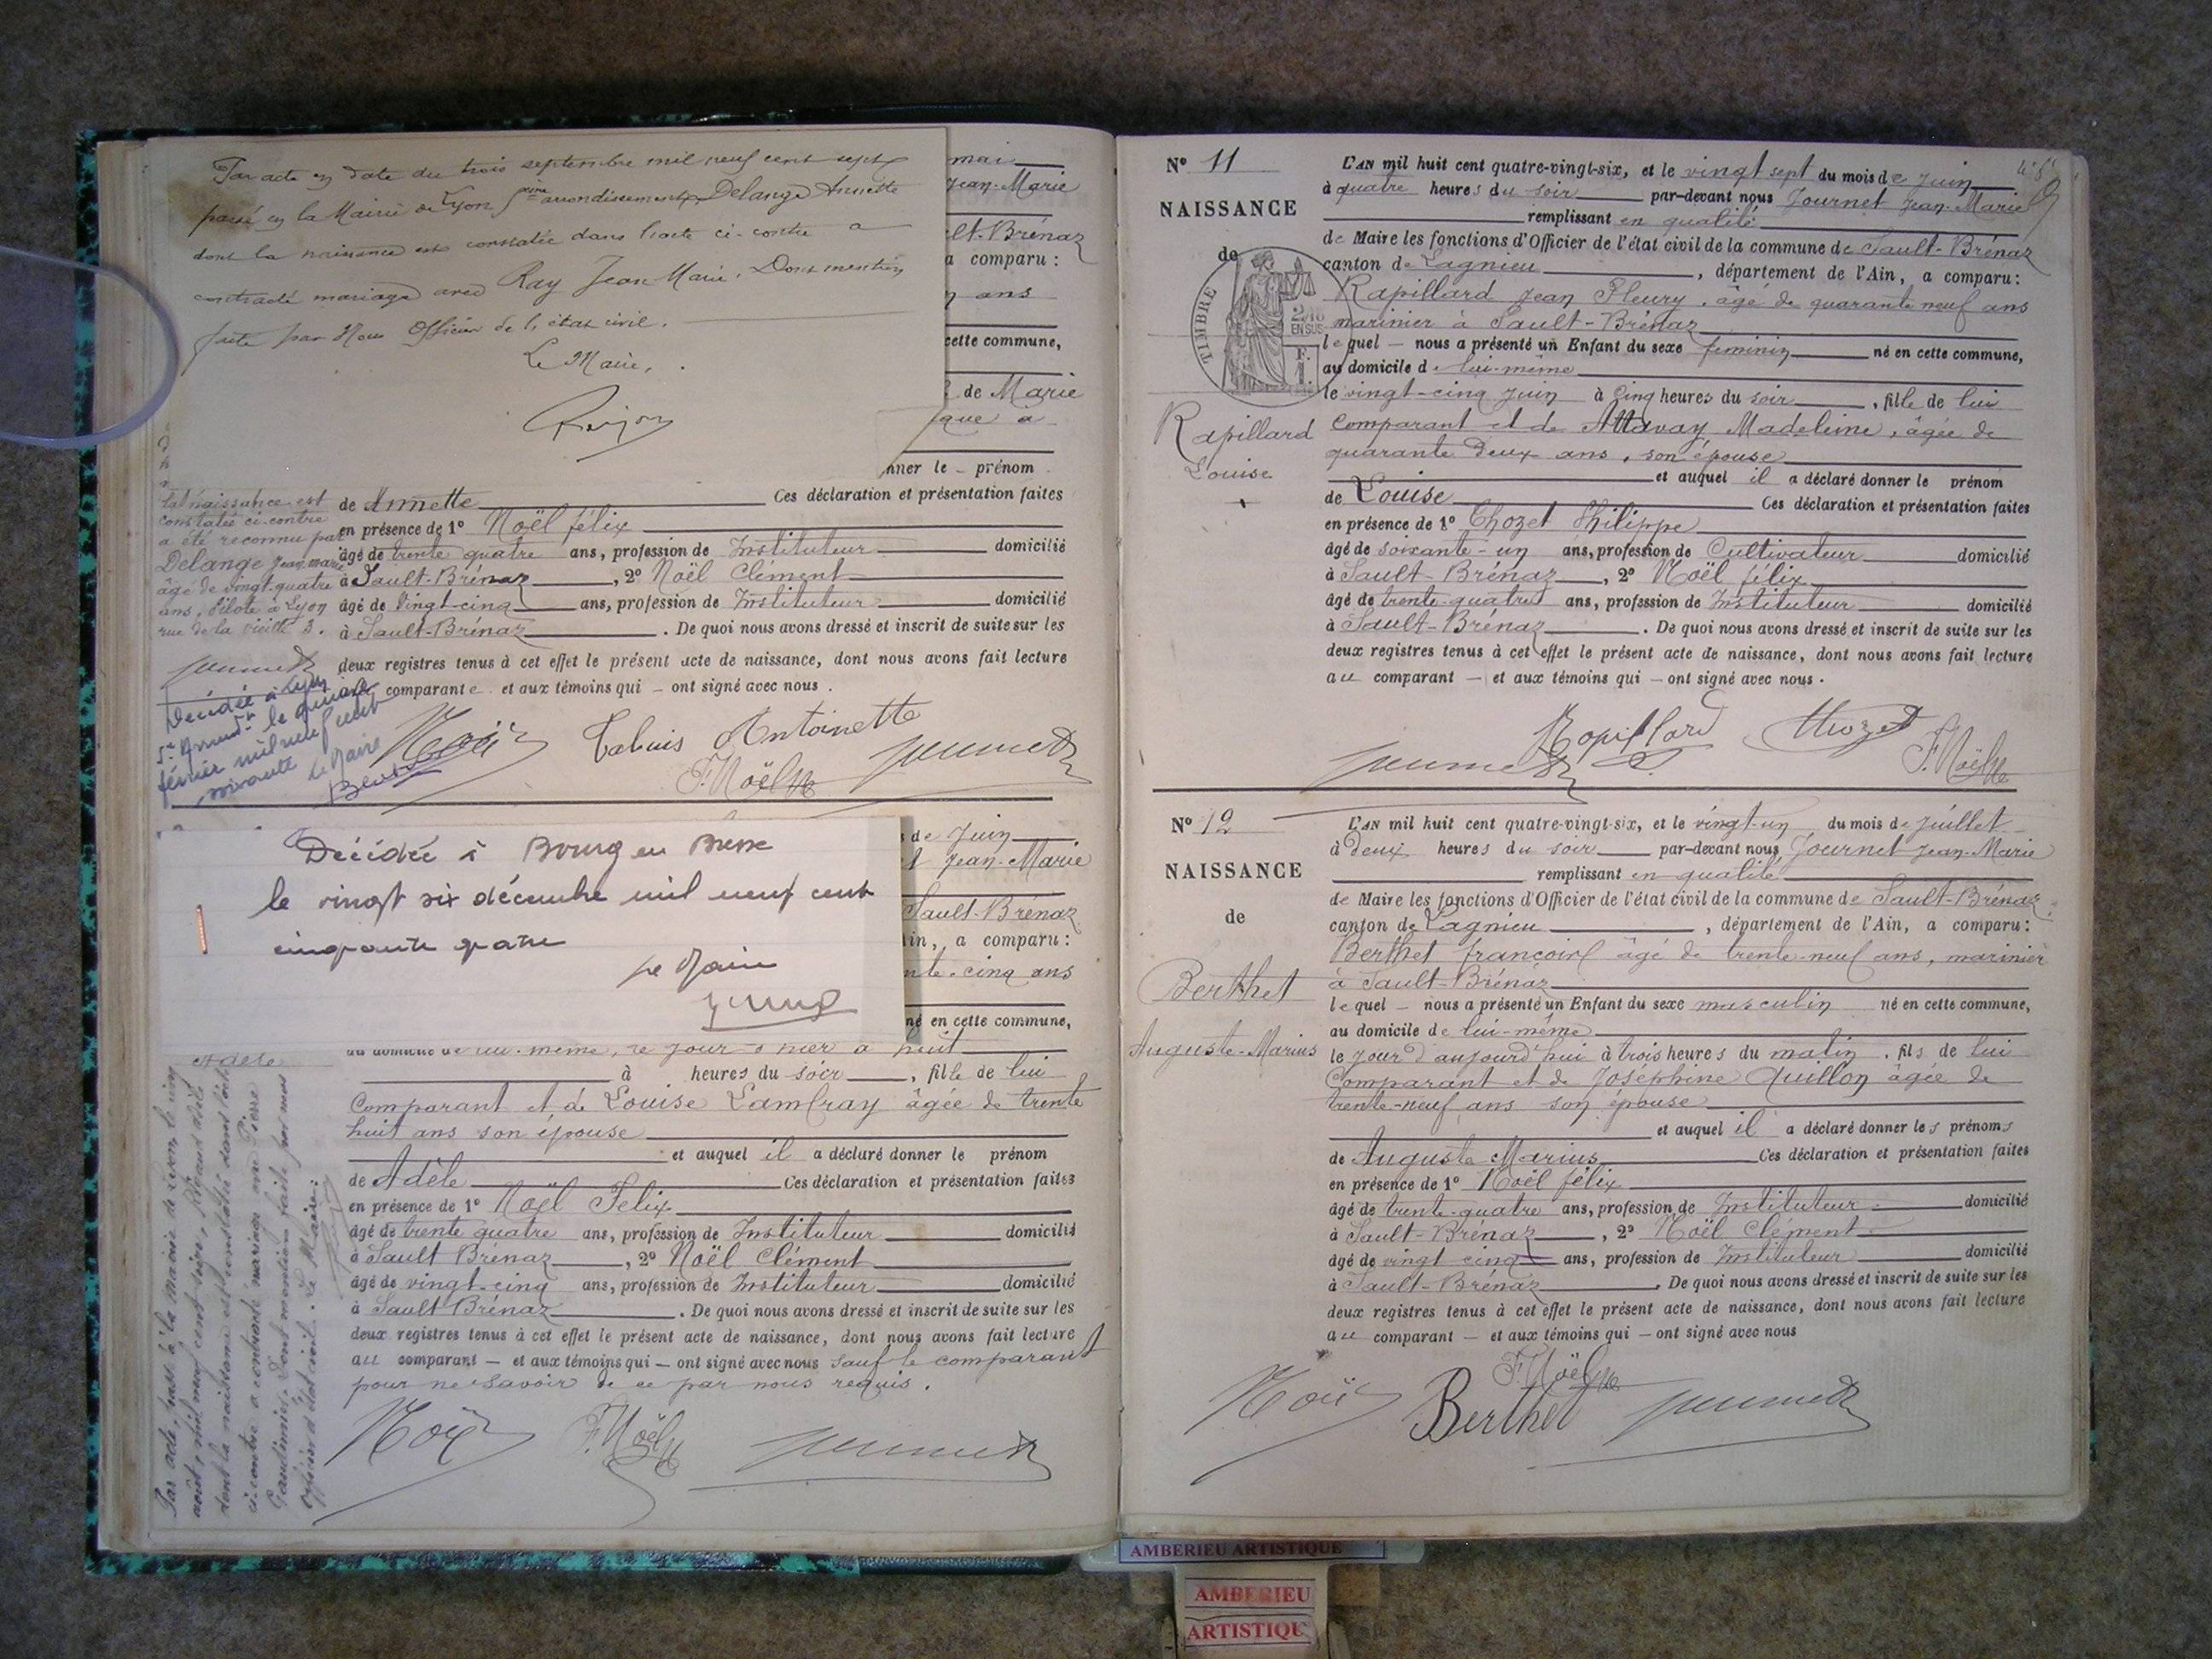 Par acte en date du trois septembre mil neuf cent sept
passé en la Mairie de Lyon 5eme arrondissement, Delange Annette
dont la naissance est constatée dans l'acte ci-contre a
contracté mariage avec Ray Jean Marie. Dont mention
faite par Nous Officier de l'état civil.
Le Maire,
mai
Jean-Marie
lt-Brénaz
a comparu :
ans
cette commune,
de Marie
que à
nner le – prénom
la naissance est
constatée ci-contre
a été reconnu par
Delange Jean Marie
âgé de vingt-quatre
ans, pilote à Lyon
rue de la vieille 3.
de Annette Ces déclaration et présentation faites
en présence de 1° Noël félix
âgé de trente quatre ans, profession de Instituteur domicilié
à Sault-Brénaz, 2° Noël Clément
âgé de Vingt-cinq ans, profession de Instituteur domicilié
à Sault-Brénaz. De quoi nous avons dressé et inscrit de suite sur les
deux registres tenus à cet effet le présent acte de naissance, dont nous avons fait lecture
comparante et aux témoins qui – ont signé avec nous.
Décédée à Lyon
5e Arrond.t le quinze
février mil neuf cent
soixante
Le Maire
Noël Tabuis Antoinette
F. Noël Journet
de Juin
Jean-Marie
Sault-Brénaz
in, a comparu :
nte-cinq ans
né en cette commune,
Décédée à Bourg en Bresse
le vingt six décembre mil neuf cent
cinquante quatre
Le Maire
Adèle
au domicile de lui-même, le jour d'hier à huit
à heures du soir, fille de lui
Comparant et de Louise Lambray âgée de trente
huit ans son épouse
et auquel il a déclaré donner le prénom
de Adèle Ces déclaration et présentation faites
en présence de 1° Noël Felix
âgé de trente quatre ans, profession de Instituteur domicilié
à Sault Brénaz, 2° Noël Clément
âgé de vingt-cinq ans, profession de Instituteur domicilié
à Sault Brénaz. De quoi nous avons dressé et inscrit de suite sur les
deux registres tenus à cet effet le présent acte de naissance, dont nous avons fait lecture
au comparant – et aux témoins qui – ont signé avec nous sauf le comparant
pour ne savoir de ce par nous requis.
Noël F. Noël Journet
Par acte, passé à la mairie de Lyon le cinq
août, mil neuf cent onze, Adèle
dont la naissance est constatée dans l'acte
ci-contre a contracté mariage avec Pierre
Dont mention faite par nous
officier d'état civil. Le Maire.
N° 11
NAISSANCE
de
TIMBRE
2/10
EN SUS
Rapillard
Louise
L'AN mil huit cent quatre-vingt-six, et le vingt sept du mois de juin
à quatre heures du soir par-devant nous Journet Jean-Marie
remplissant en qualité
de Maire les fonctions d'Officier de l'état civil de la commune de Sault-Brénaz
canton de Lagnieu, département de l'Ain, a comparu :
Rapillard Jean Fleury, âgé de quarante neuf ans
marinier à Sault-Brénaz
lequel – nous a présenté un Enfant du sexe feminin né en cette commune,
au domicile de lui-même
le vingt-cinq juin à cinq heures du soir, fille de lui
Comparant et de Attavay Madeleine, âgée de
quarante deux ans, son épouse
et auquel il a déclaré donner le prénom
de Louise Ces déclaration et présentation faites
en présence de 1° Chozet Philippe
âgé de soixante-un ans, profession de Cultivateur domicilié
à Sault-Brénaz, 2° Noël félix
âgé de trente-quatre ans, profession de Instituteur domicilié
à Sault-Brénaz. De quoi nous avons dressé et inscrit de suite sur les
deux registres tenus à cet effet le présent acte de naissance, dont nous avons fait lecture
au comparant – et aux témoins qui – ont signé avec nous.
Rapillard Chozet
Journet F. Noël
N° 12
NAISSANCE
de
Berthet
Auguste-Marius
L'AN mil huit cent quatre-vingt-six, et le vingt-un du mois de juillet
à deux heures du soir par-devant nous Journet Jean-Marie
remplissant en qualité
de Maire les fonctions d'Officier de l'état civil de la commune de Sault-Brénaz
canton de Lagnieu, département de l'Ain, a comparu :
Berthet françois âgé de trente-neuf ans, marinier
à Sault-Brénaz
lequel – nous a présenté un Enfant du sexe masculin né en cette commune,
au domicile de lui-même
le jour d'aujourd'hui à trois heures du matin, fils de lui
Comparant et de Joséphine Quillon âgée de
trente-neuf ans son épouse
et auquel il a déclaré donner les prénoms
de Auguste Marius Ces déclaration et présentation faites
en présence de 1° Noël félix
âgé de trente-quatre ans, profession de Instituteur domicilié
à Sault-Brénaz, 2° Noël Clément
âgé de vingt cinq ans, profession de Instituteur domicilié
à Sault-Brénaz. De quoi nous avons dressé et inscrit de suite sur les
deux registres tenus à cet effet le présent acte de naissance, dont nous avons fait lecture
au comparant – et aux témoins qui – ont signé avec nous
F. Noël
Noël Berthet Journet
AMBERIEU ARTISTIQUE
AMBERIEU
ARTISTIQU